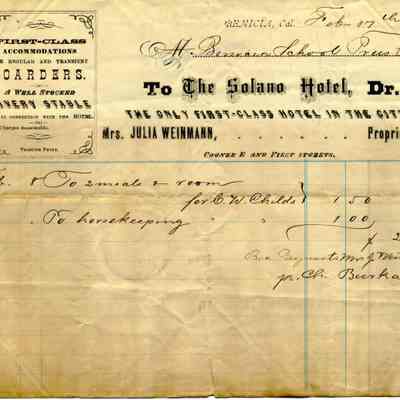 FIRST-CLASS
ACCOMMODATIONS
REGULAR AND TRANSIENT
OARDERS.
A WELL STOCKED
IVERY STABLE
IN CONNECTION WITH THE HOTEL.
Charges Reasonable.
BENICIA, Cal. Feb 27th
Benicia School Trust
To The Solano Hotel, Dr.
THE ONLY FIRST-CLASS HOTEL IN THE CIT
Mrs. JULIA WEINMANN, . . . . . . Propri
CORNER E AND FIRST STREETS.
To 2 meals & room
for C. W. Childs 1 50
To horsekeeping " " 1 00
$ 2
Rec Payment Mrs J Wei
pr. Ch.